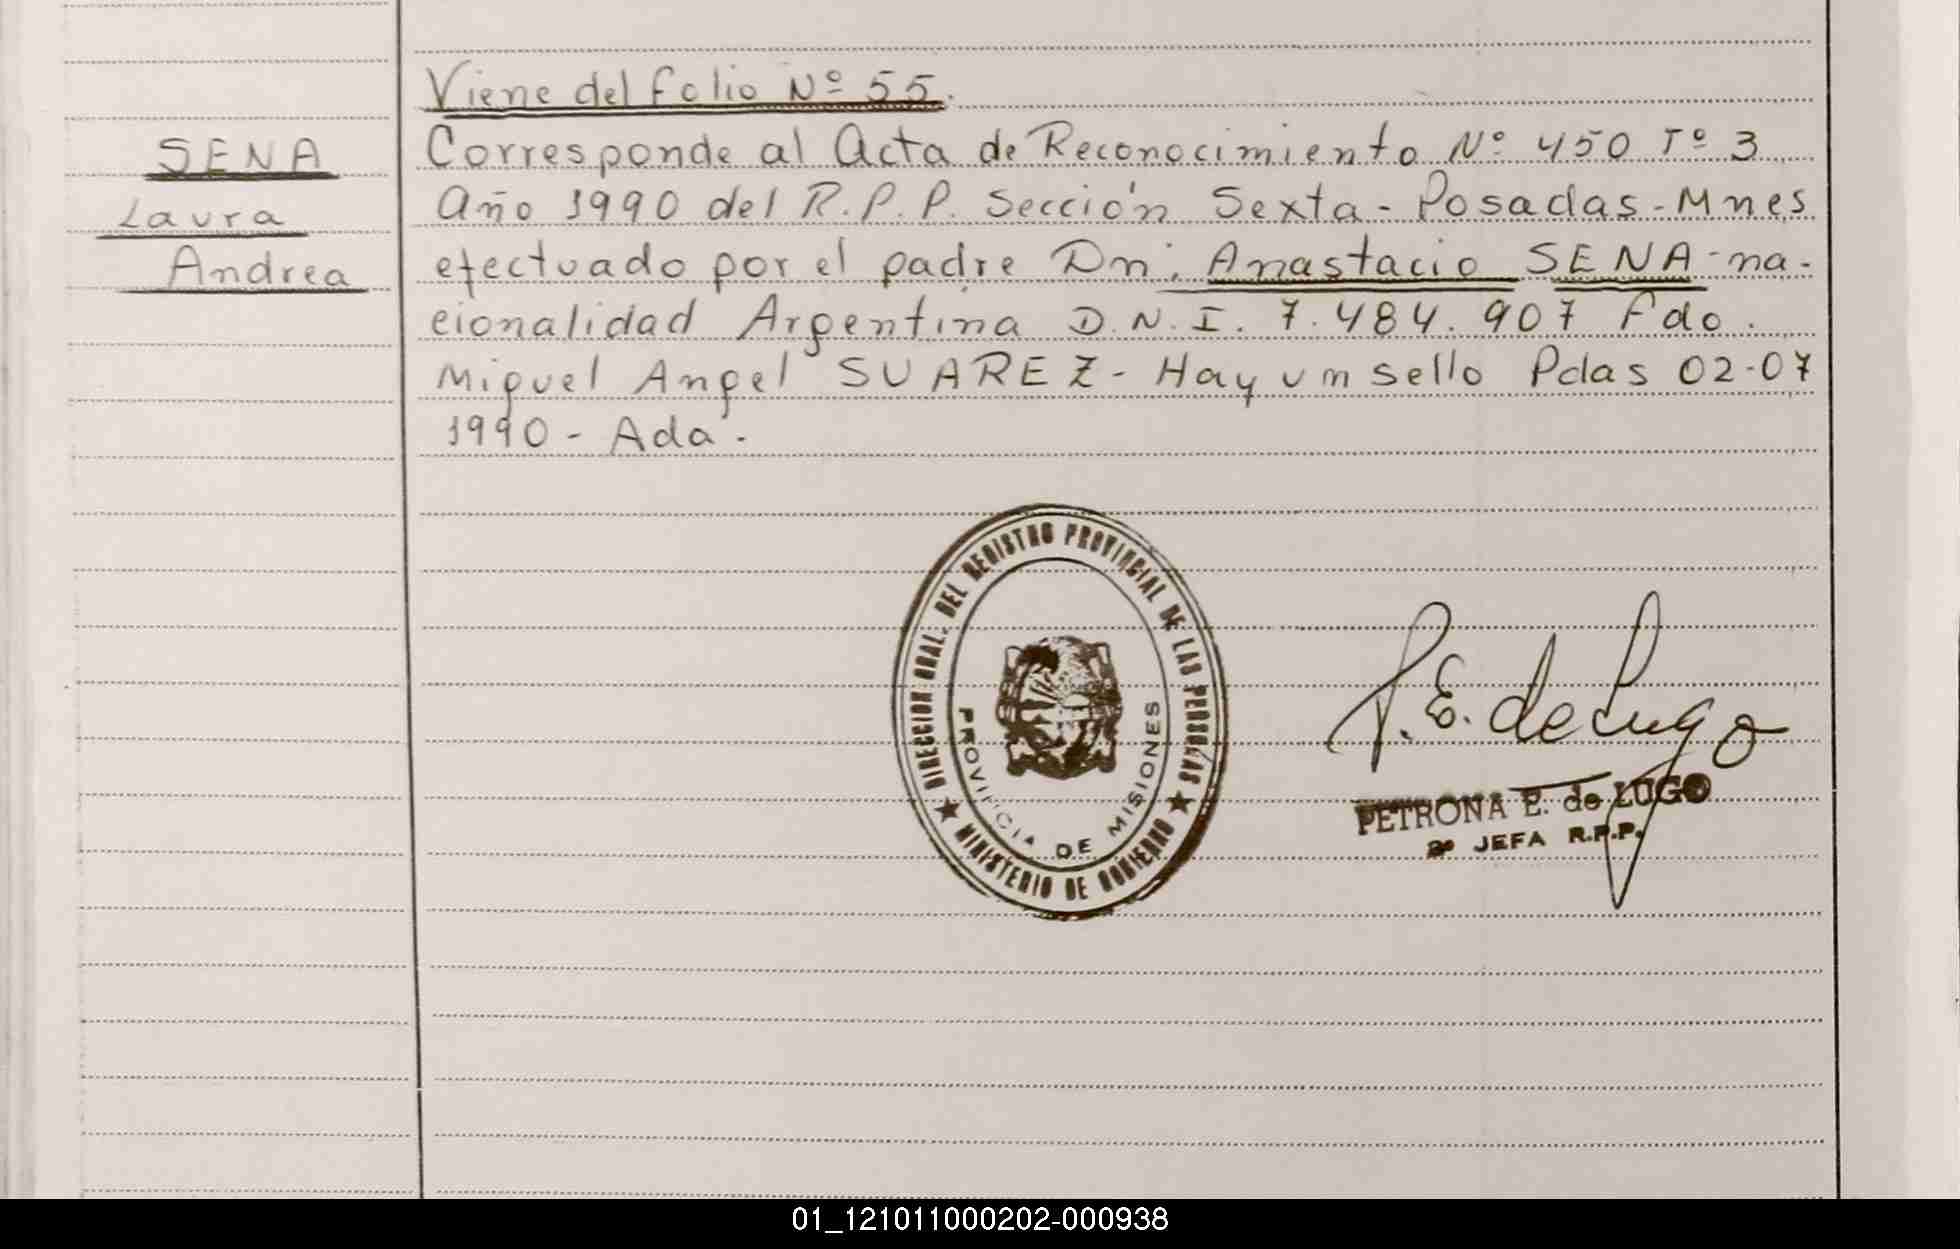 Viene del folio Nº 55.
SENA
Laura
Andrea
Corresponde al Acta de Reconocimiento Nº 450 Tº 3
Año 1990 del R.P.P. Sección Sexta - Posadas - Mnes
efectuado por el padre Dn. Anastacio SENA - na-
cionalidad Argentina D.N.I. 7.484.907 Fdo.
Miguel Angel SUAREZ - Hay un sello Pdas 02-07
1990 - Ada.
DIRECCION GRAL. DEL REGISTRO PROVINCIAL DE LAS PERSONAS
PROVINCIA DE MISIONES
★ MINISTERIO DE GOBIERNO ★
P.E. de Lugo
PETRONA E. de LUGO
2º JEFA R.P.P.
01_121011000202-000938